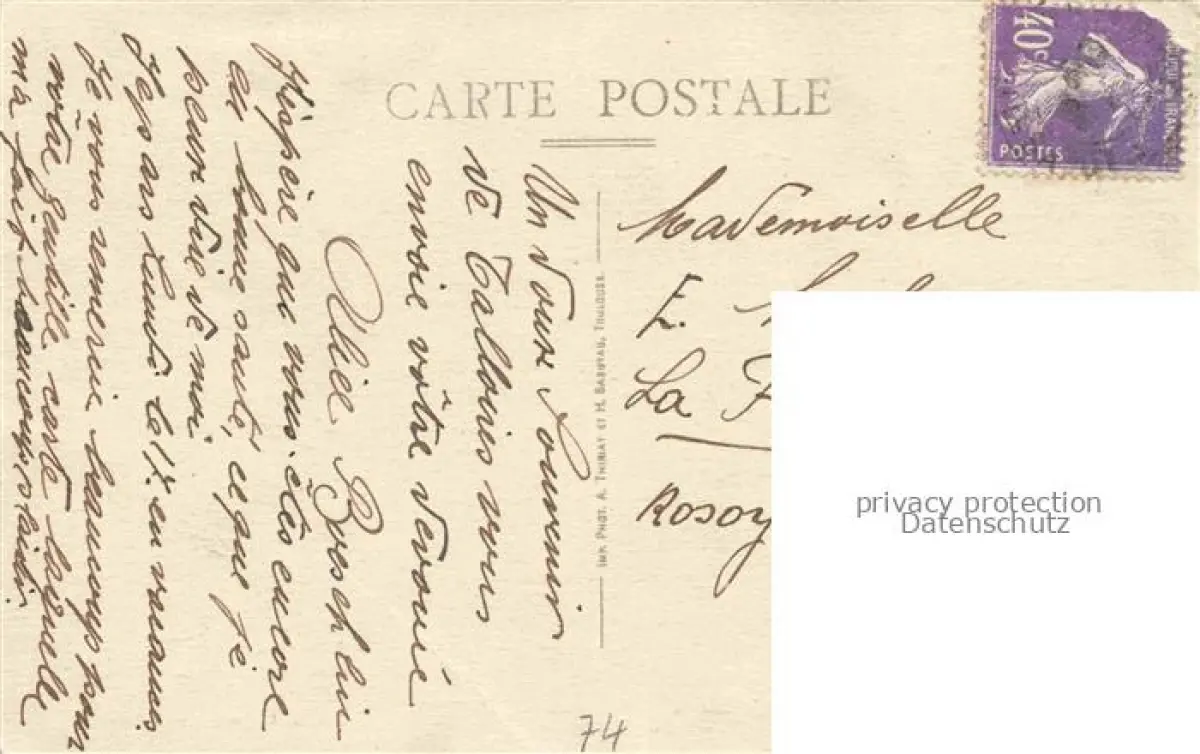 CARTE POSTALE
40c
POSTES
Un doux souvenir
de Talloires vous
envoie vôtre dévouée
Alice
J'espère que vous êtes encore
en bonne santé, ce que je
peux dire de moi.
Je pars lundi le 17. en vacances
Je vous remercie beaucoup pour
votre gentille carte laquelle
m'a fait beaucoup plaisir.
IMP. PHOT. A. THIRIAT ET H. BASUYAU, TOULOUSE
Mademoiselle
E.
La
Rosoy
74
privacy protection
Datenschutz